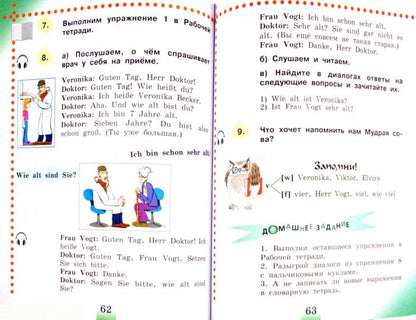 7. Выполним упражнение 1 в Рабочей
тетради.
8. а) Послушаем, о чём спрашивает
врач у себя на приёме.
Veronika: Guten Tag, Herr Doktor!
Doktor: Guten Tag! Wie heißt du?
Veronika: Ich heiße Veronika Becker.
Doktor: Aha. Und wie alt bist du?
Veronika: Ich bin 7 Jahre alt.
Doktor: Sieben Jahre? Du bist also
schon groß. (Ты уже большая.)
Ich bin schon sehr alt.
Wie alt sind Sie?
Frau Vogt: Guten Tag, Herr Doktor! Ich
heiße Vogt.
Doktor: Guten Tag, Frau Vogt. Setzen
Sie sich bitte.
Frau Vogt: Danke.
Doktor: Sagen Sie bitte, wie alt sind
Sie?
62
Frau Vogt: Ich bin schon sehr alt.
Doktor: Sehr alt? Sie sind gar nicht so
alt. (Вы ещё совсем не такая старая.)
Frau Vogt: Danke, Herr Doktor.
б) Слушаем и читаем.
в) Найдите в диалогах ответы на
следующие вопросы и зачитайте их.
1) Wie alt ist Veronika?
2) Ist Frau Vogt sehr alt?
9. Что хочет напомнить нам Мудрая со-
ва?
Запомни!
[w] Veronika, Viktor, Elvira
[f] vier, Herr Vogt, viel, wie viel
ДОМАШНЕЕ ЗАДАНИЕ
1. Выполни оставшиеся упражнения в
Рабочей тетради.
2. Разыграй диалоги из упражнения 8
с пальчиковыми куклами.
3. А не записать ли новые выражения
в словарную тетрадь.
63